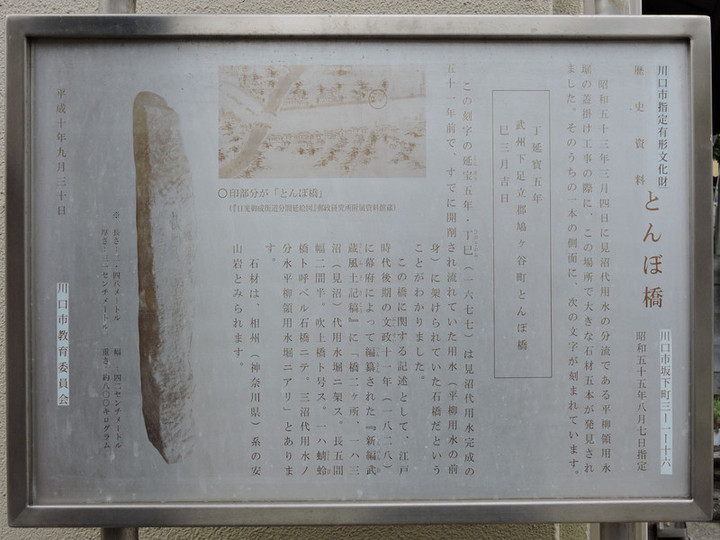 川口市指定有形文化財
歴史資料
とんぼ橋
川口市坂下町三ー一ー十六
昭和五十五年八月七日指定
昭和五十三年三月四日に見沼代用水の分流である平柳領用水
堀の蓋掛け工事の際に、この場所で大きな石材五本が発見され
ました。そのうちの一本の側面に、次の文字が刻まれています。
丁延寳五年
武州下足立郡鳩ヶ谷町とんぼ橋
巳三月吉日
この刻字の延宝五年・丁巳(一六七七)は見沼代用水完成の
五十一年前で、すでに開削され流れていた用水(平柳用水の前
身)に架けられていた石橋だという
ことがわかりました。
この橋に関する記述として、江戸
時代後期の文政十一年(一八二八)
に幕府によって編纂された『新編武
蔵風土記稿』に「橋二ヶ所、一ハ三
沼(見沼)代用水堀ニ架ス。長五間
幅二間半、吹上橋ト号ス。一ハ蜻蛉
橋ト呼ベル石橋ニテ。三沼代用水ノ
分水平柳領用水堀ニアリ」とありま
す。
石材は、相州(神奈川県)系の安
山岩とみられます。
〇印部分が「とんぼ橋」
※ 長さ:二.四八メートル 幅:四二センチメートル
厚さ:三一センチメートル 重さ:約八〇〇キログラム
平成十年九月三十日
川口市教育委員会